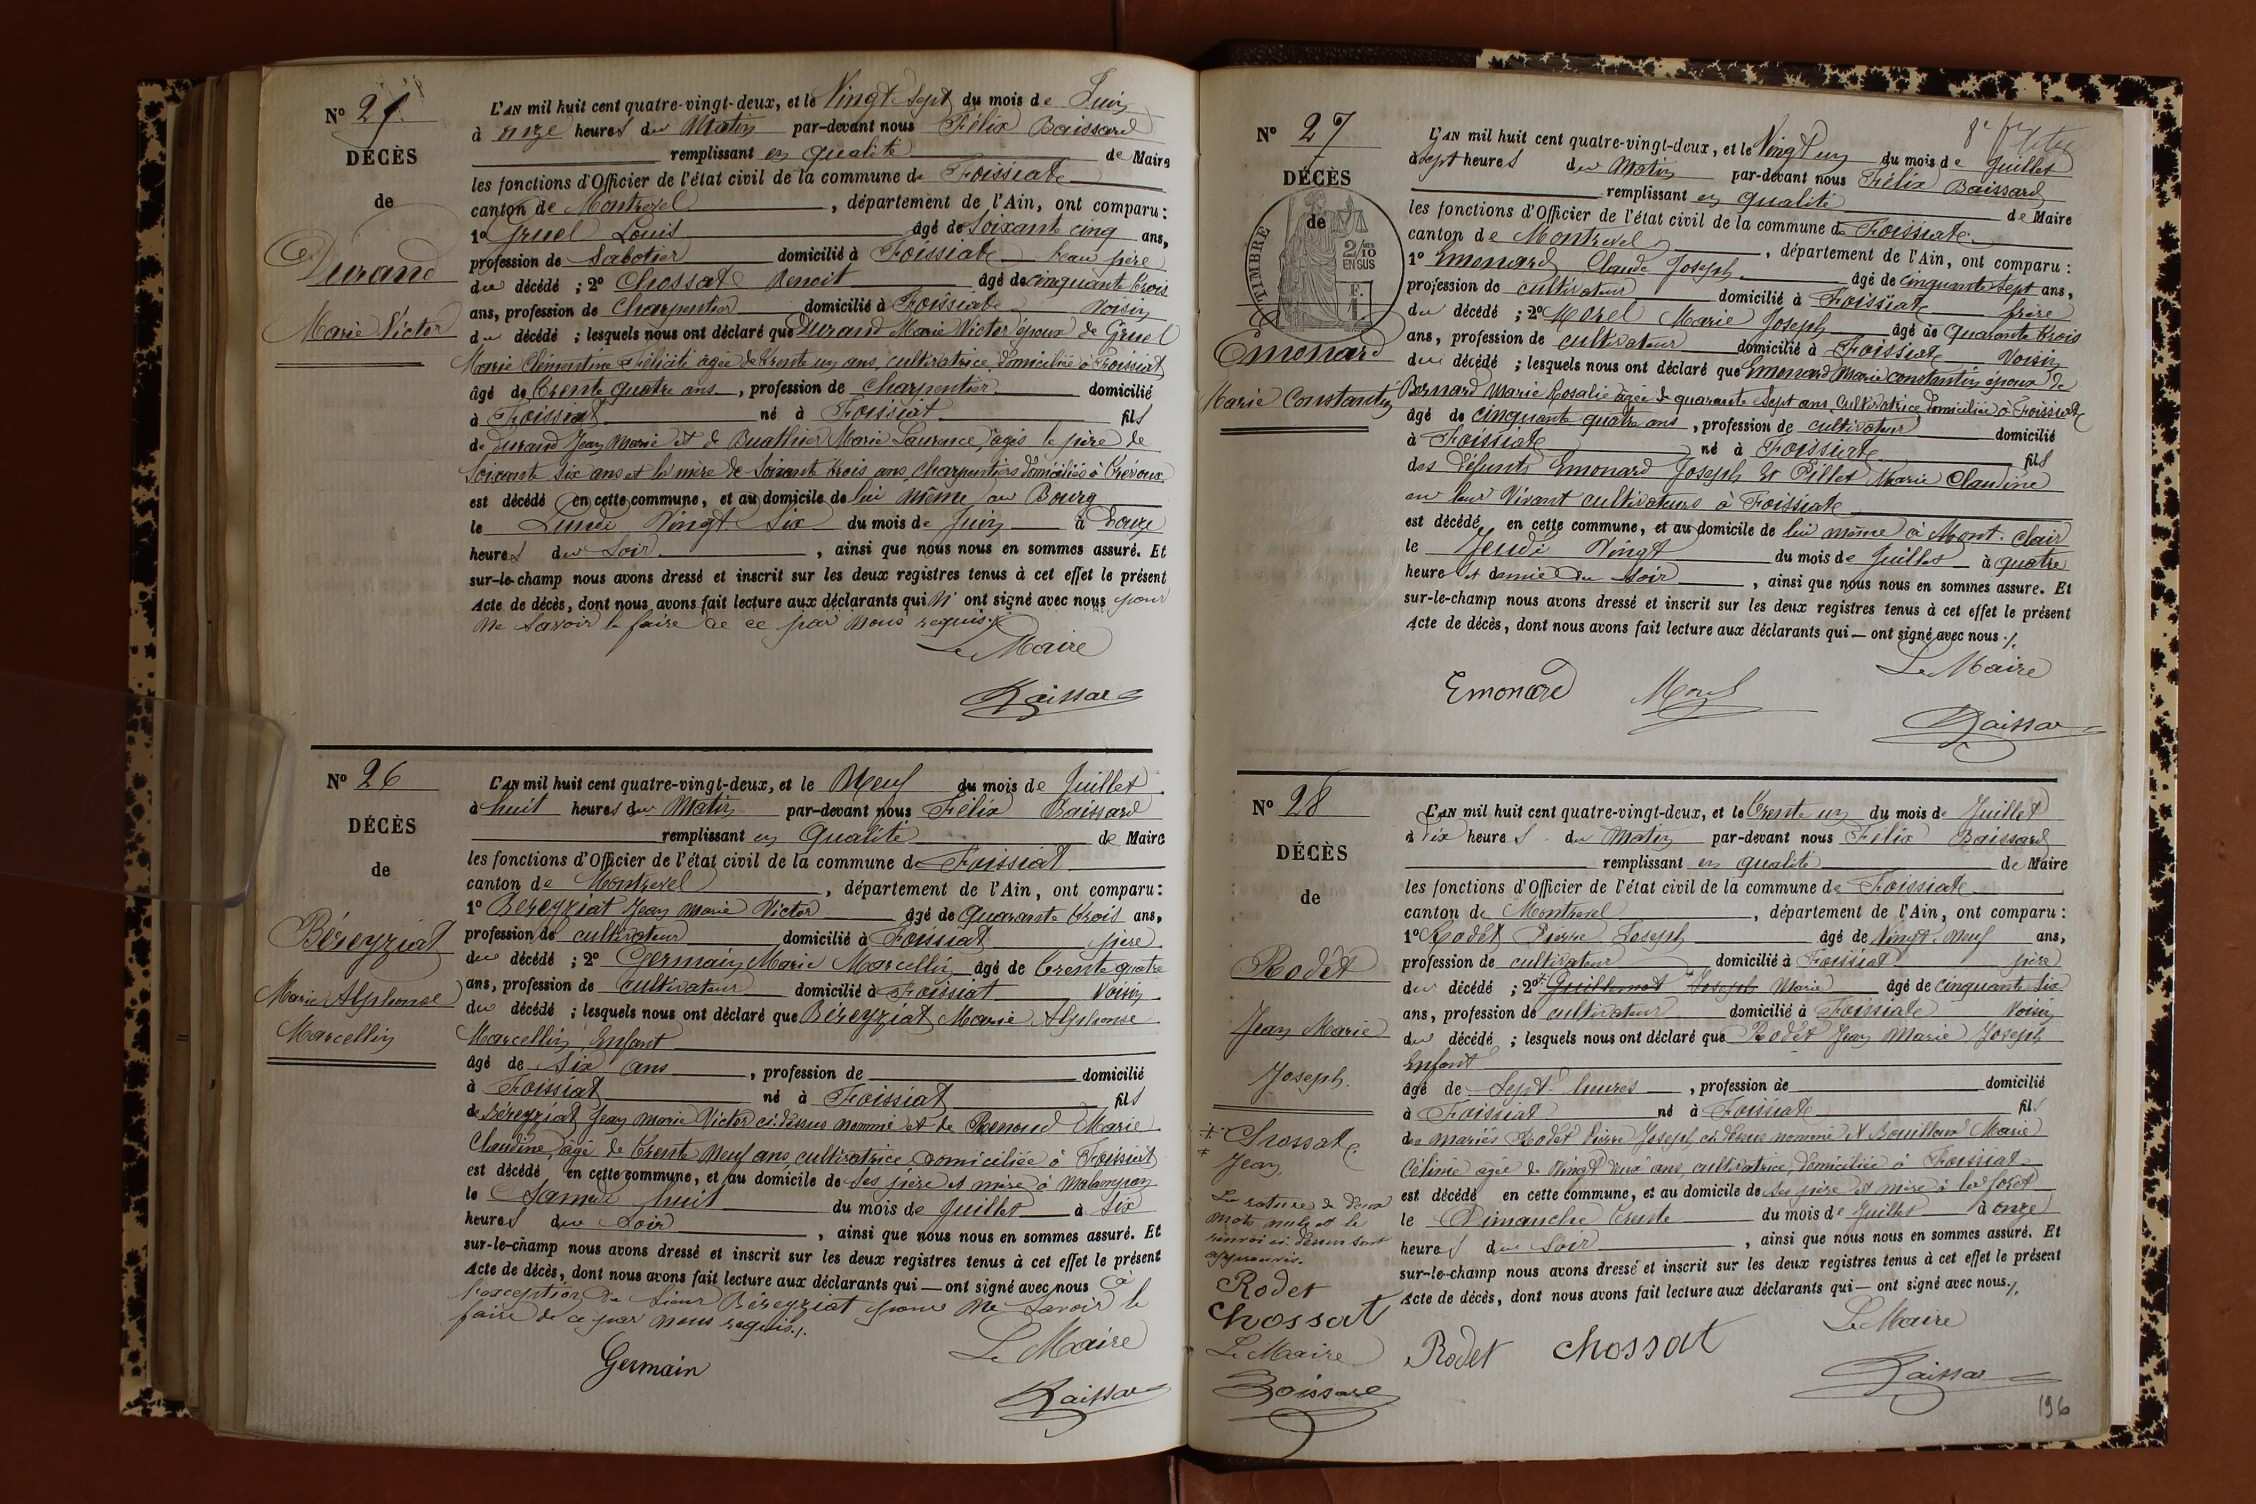 Nº 25
DÉCÈS
de
Durand
Marie Victor
L'AN mil huit cent quatre-vingt-deux, et le Vingt Sept du mois de Juin
à onze heures du Matin par-devant nous Félix Baissard
remplissant en qualité de Maire
les fonctions d'Officier de l'état civil de la commune de Foissiat
canton de Montrevel, département de l'Ain, ont comparu:
1º Gruel Louis âgé de Soixante cinq ans,
profession de Sabotier domicilié à Foissiat beau père
du décédé ; 2º Chossat Benoit âgé de cinquante trois
ans, profession de Charpentier domicilié à Foissiat Voisin
du décédé ; lesquels nous ont déclaré que Durand Marie Victor époux de Gruel
Marie Clémentine Félicité agée de trente un ans, cultivatrice, domiciliée à Foissiat
âgé de trente quatre ans, profession de Charpentier domicilié
à Foissiat né à Foissiat fils
de Durand Jean Marie et de Buathier Marie Laurence, agés le père de
Soixante six ans et la mère de Soixante trois ans, charpentiers domiciliés à
est décédé en cette commune, et au domicile de lui même au Bourg
le Lundi Vingt Six du mois de Juin à Douze
heures du Soir, ainsi que nous nous en sommes assuré. Et
sur-le-champ nous avons dressé et inscrit sur les deux registres tenus à cet effet le présent
Acte de décès, dont nous avons fait lecture aux déclarants qui n' ont signé avec nous pour
ne Savoir le faire de ce par nous requis./.
Le Maire
Baissard
Nº 26
DÉCÈS
de
Béreyziat
Marie Alphonse
Marcellin
L'AN mil huit cent quatre-vingt-deux, et le Neuf du mois de Juillet
à huit heures du Matin par-devant nous Félix Baissard
remplissant en Qualité de Maire
les fonctions d'Officier de l'état civil de la commune de Foissiat
canton de Montrevel, département de l'Ain, ont comparu:
1º Béreyziat Jean Marie Victor âgé de quarante trois ans,
profession de cultivateur domicilié à Foissiat père
du décédé ; 2º Germain Marie Marcellin âgé de trente quatre
ans, profession de cultivateur domicilié à Foissiat Voisin
du décédé ; lesquels nous ont déclaré que Béreyziat Marie Alphonse
Marcellin, Enfant
âgé de Six ans, profession de domicilié
à Foissiat né à Foissiat fils
de Béreyziat Jean Marie Victor ci-dessus nommé et de Renoud Marie
Claudine, agé de trente Neuf ans, cultivatrice domiciliée à Foissiat
est décédé en cette commune, et au domicile de Ses père et mère à
le Samedi huit du mois de Juillet à Six
heures du Soir, ainsi que nous nous en sommes assuré. Et
sur-le-champ nous avons dressé et inscrit sur les deux registres tenus à cet effet le présent
Acte de décès, dont nous avons fait lecture aux déclarants qui — ont signé avec nous à
l'exception du Sieur Béreyziat pour ne Savoir le
faire de ce par nous requis./.
Germain
Le Maire
Baissard
Nº 27
DÉCÈS
de
TIMBRE
2/10
EN SUS
Emonard
Marie Constantin
L'AN mil huit cent quatre-vingt-deux, et le Vingt un du mois de Juillet
à Sept heures du Matin par-devant nous Félix Baissard
remplissant en qualité de Maire
les fonctions d'Officier de l'état civil de la commune de Foissiat
canton de Montrevel, département de l'Ain, ont comparu :
1º Emonard Claude Joseph âgé de cinquante Sept ans,
profession de cultivateur domicilié à Foissiat frère
du décédé ; 2º Morel Marie Joseph âgé de quarante trois
ans, profession de cultivateur domicilié à Foissiat Voisin
du décédé ; lesquels nous ont déclaré que Emonard Marie Constantin époux de
Bernard Marie Rosalie agée de quarante Sept ans, Cultivatrice, domiciliée à Foissiat
âgé de cinquante quatre ans, profession de cultivateur domicilié
à Foissiat né à Foissiat fils
des défunts Emonard Joseph et Pillet Marie Claudine
en leur Vivant cultivateurs à Foissiat
est décédé en cette commune, et au domicile de lui même à Mont-Clair
le Jeudi Vingt du mois de Juillet à quatre
heure et demie du Soir, ainsi que nous nous en sommes assuré. Et
sur-le-champ nous avons dressé et inscrit sur les deux registres tenus à cet effet le présent
Acte de décès, dont nous avons fait lecture aux déclarants qui — ont signé avec nous ./.
Le Maire
Emonard Morel
Baissard
Nº 28
DÉCÈS
de
Rodet
Jean Marie
Joseph
Chossat
Jean
La rature de deux
mots nuls et le
renvoi ci-dessus sont
approuvés.
Rodet
Chossat
Le Maire
Baissard
L'AN mil huit cent quatre-vingt-deux, et le trente un du mois de Juillet
à Dix heures du Matin par-devant nous Félix Baissard
remplissant en qualité de Maire
les fonctions d'Officier de l'état civil de la commune de Foissiat
canton de Montrevel, département de l'Ain, ont comparu :
1º Rodet Pierre Joseph âgé de Vingt-Neuf ans,
profession de cultivateur domicilié à Foissiat père
du décédé ; 2º Guillemot Joseph Marie âgé de cinquante Six
ans, profession de cultivateur domicilié à Foissiat Voisin
du décédé ; lesquels nous ont déclaré que Rodet Jean Marie Joseph
Enfant
âgé de Sept heures, profession de domicilié
à Foissiat né à Foissiat fils
des mariés Rodet Pierre Joseph, ci-dessus nommé et Bouilloux Marie
Céline agée de Vingt deux ans, cultivatrice, domiciliée à Foissiat
est décédé en cette commune, et au domicile de ses père et mère à la forêt
le Dimanche trente du mois de Juillet à onze
heures du Soir, ainsi que nous nous en sommes assuré. Et
sur-le-champ nous avons dressé et inscrit sur les deux registres tenus à cet effet le présent
Acte de décès, dont nous avons fait lecture aux déclarants qui — ont signé avec nous./.
Le Maire
Rodet Chossat
Baissard
196